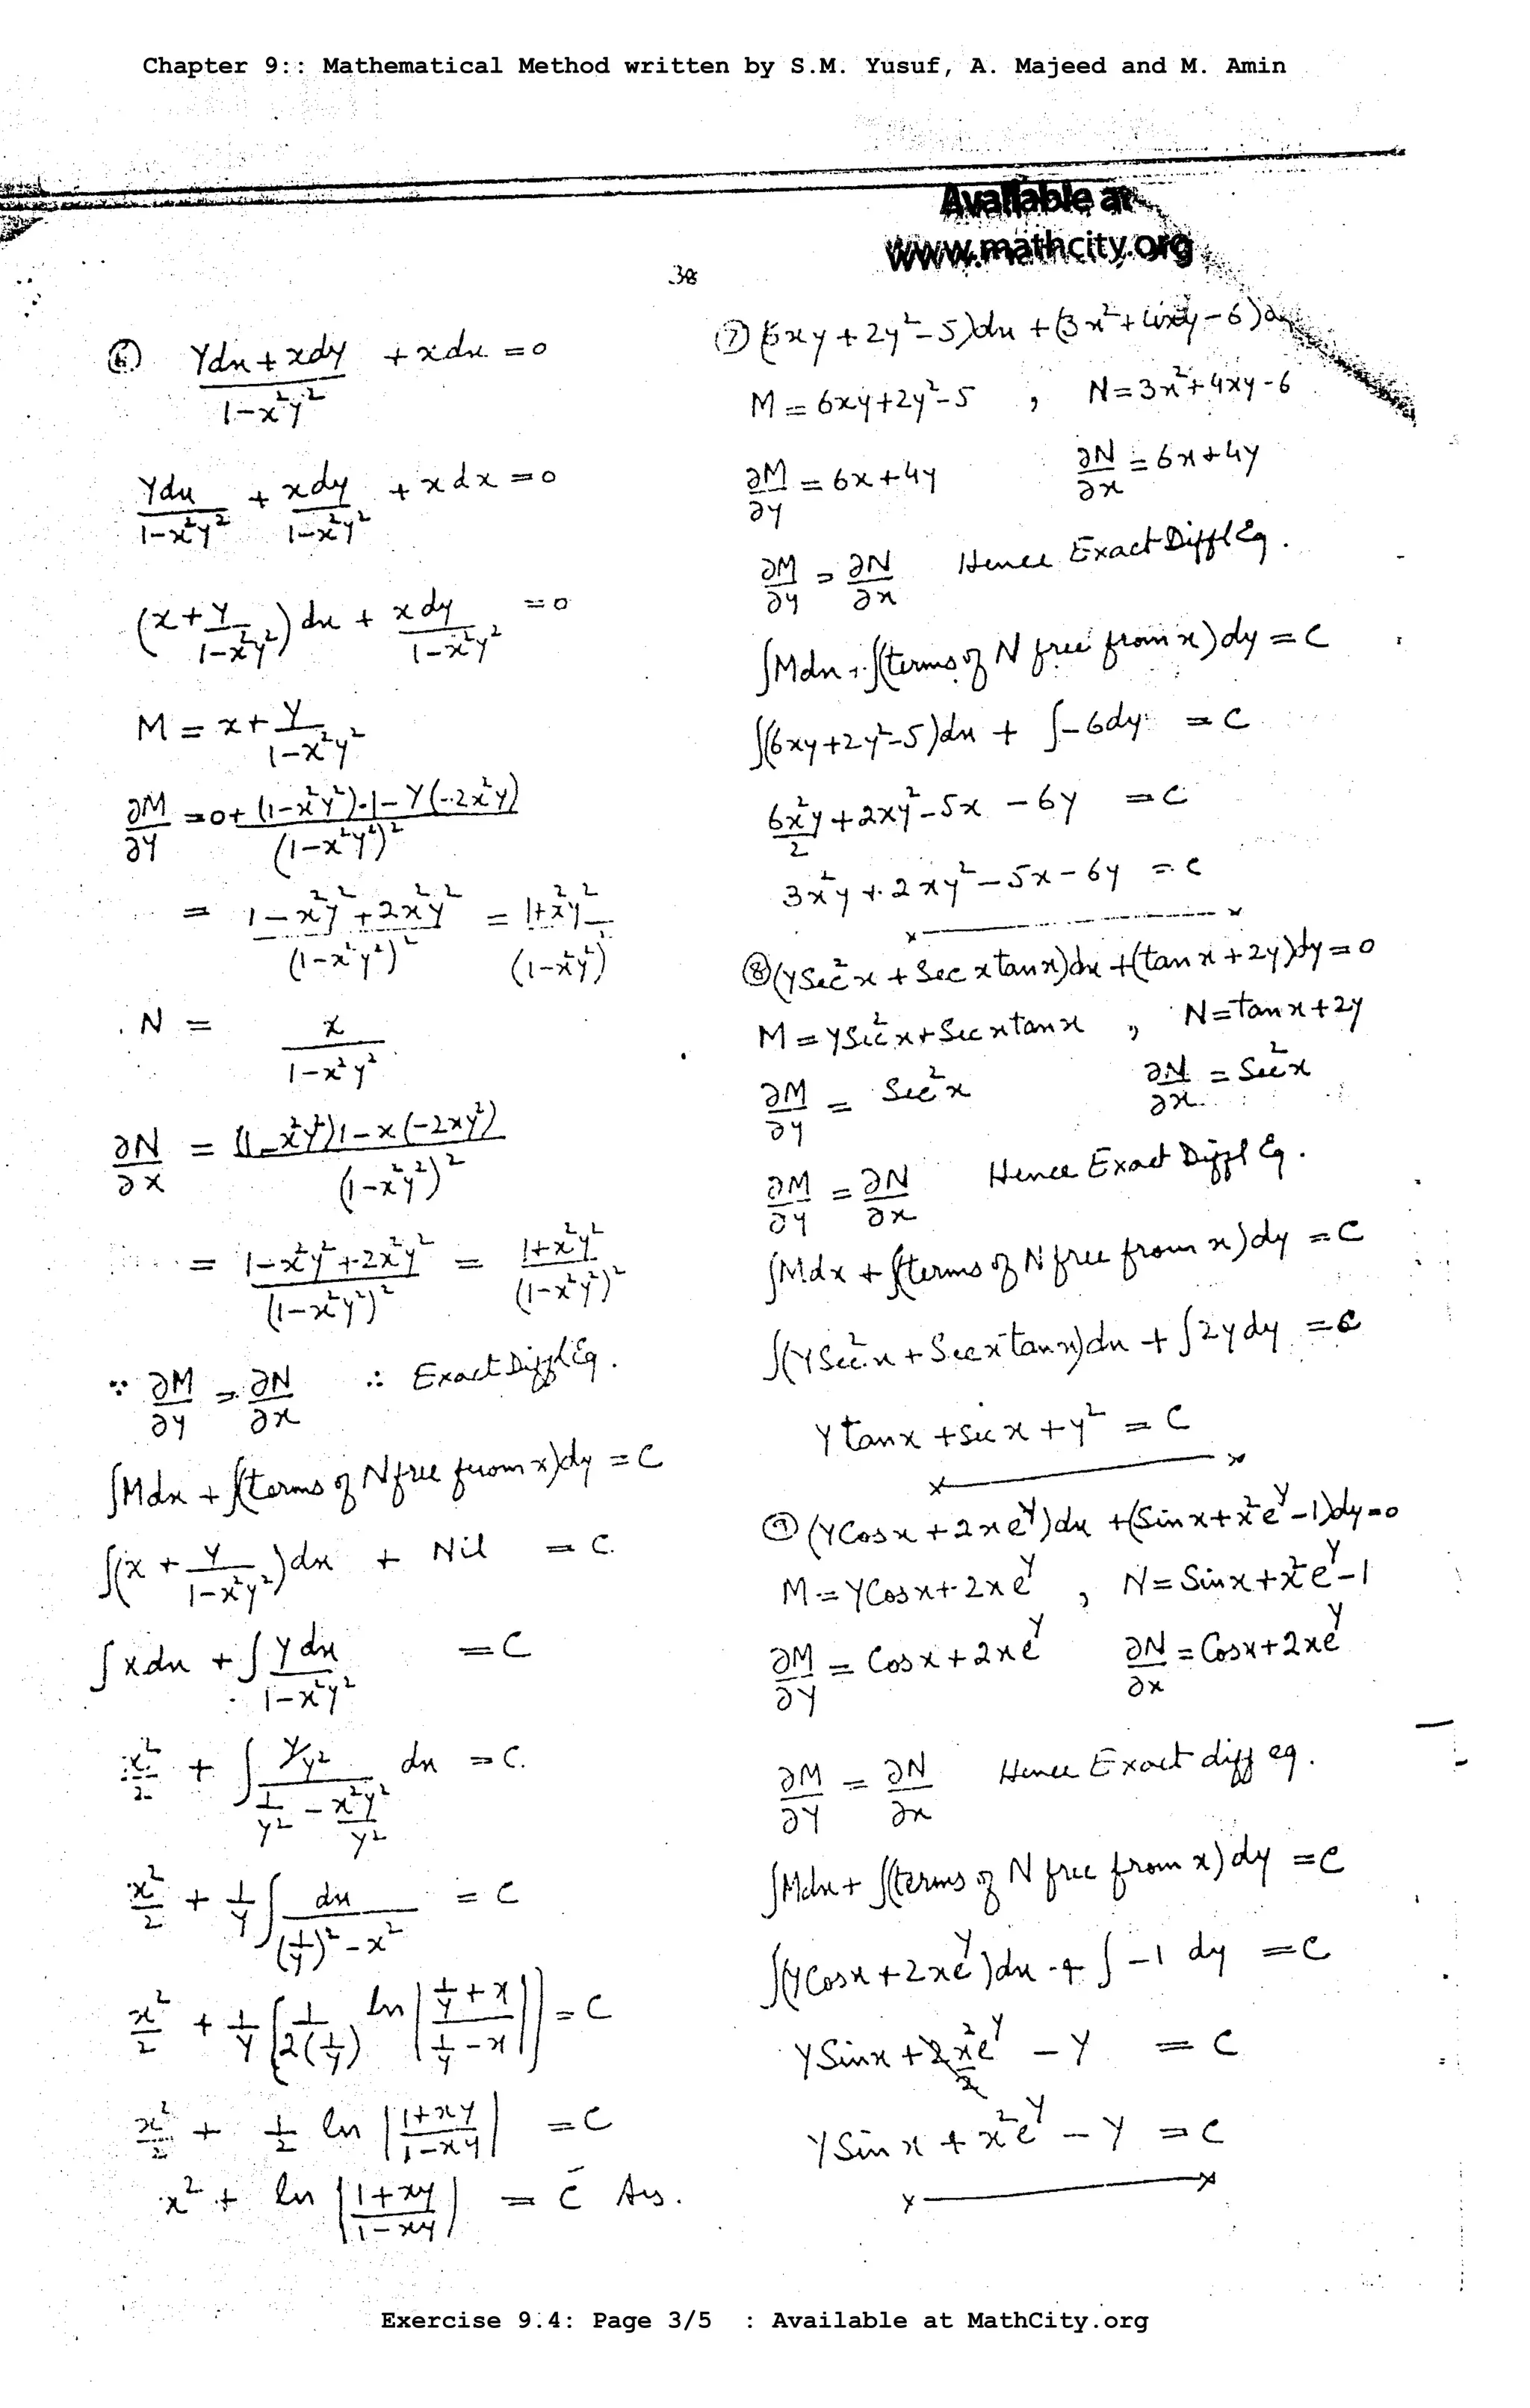 Chapter 9:: Mathematical Method written by S.M. Yusuf, A. Majeed and M. Amin
Available at
www.mathcity.org
38
⑥ (Ydx + xdy)/(1-x²y²) + xdx = 0
Ydx/(1-x²y²) + xdy/(1-x²y²) + xdx = 0
(x + Y/(1-x²y²)) dx + xdy/(1-x²y²) = 0
M = x + Y/(1-x²y²)
∂M/∂Y = 0 + ((1-x²y²)·1 - Y(-2x²y))/(1-x²y²)²
= (1-x²y²+2x²y²)/(1-x²y²)² = (1+x²y²)/(1-x²y²)²
N = x/(1-x²y²)
∂N/∂x = ((1-x²y²)1 - x(-2xy²))/(1-x²y²)²
= (1-x²y²+2x²y²)/(1-x²y²)² = (1+x²y²)/(1-x²y²)²
∵ ∂M/∂y = ∂N/∂x ∴ Exact Diffl Eq.
∫Mdx + ∫(terms of N free from x)dy = C
∫(x + Y/(1-x²y²))dx + Nil = C.
∫xdx + ∫Ydx/(1-x²y²) = C
x²/2 + ∫ (Y/y²)/(1/y² - x²y²/y²) dx = C.
x²/2 + 1/Y ∫ dx/((1/y)²-x²) = C
x²/2 + 1/Y [1/(2(1/y)) ln |(1/y + x)/(1/y - x)|] = C
x²/2 + 1/2 ln |(1+xy)/(1-xy)| = C
x² + ln |(1+xy)/(1-xy)| = C̄ Ans.
⑦ (6xy + 2y² - 5)dx + (3x² + 4xy - 6)dy
M = 6xy+2y²-5 , N = 3x²+4xy-6
∂M/∂y = 6x+4y ∂N/∂x = 6x+4y
∂M/∂y = ∂N/∂x Hence Exact Diffl Eq.
∫Mdx + ∫(terms of N free from x)dy = C
∫(6xy+2y²-5)dx + ∫-6dy = C
6x²y/2 + 2xy² - 5x - 6y = C
3x²y + 2xy² - 5x - 6y = C
⑧ (ySec²x + Sec x tan x)dx + (tan x + 2y)dy = 0
M = ySec²x + Sec x tan x , N = tan x + 2y
∂M/∂y = Sec²x ∂N/∂x = Sec²x
∂M/∂y = ∂N/∂x Hence Exact Diffl Eq.
∫Mdx + ∫(terms of N free from x)dy = C
∫(YSec²x + Sec x tan x)dx + ∫2ydy = C
Y tan x + Sec x + y² = C
⑨ (YCos x + 2xe^Y)dx + (Sin x + x²e^Y - 1)dy = 0
M = YCos x + 2xe^Y , N = Sin x + x²e^Y - 1
∂M/∂Y = Cos x + 2xe^Y ∂N/∂x = Cos x + 2xe^Y
∂M/∂Y = ∂N/∂x Hence Exact diff eq.
∫Mdx + ∫(terms of N free from x)dy = C
∫(YCos x + 2xe^Y)dx + ∫-1 dy = C
YSin x + 2x²e^Y/2 - Y = C
YSin x + x²e^Y - Y = C
Exercise 9.4: Page 3/5 : Available at MathCity.org